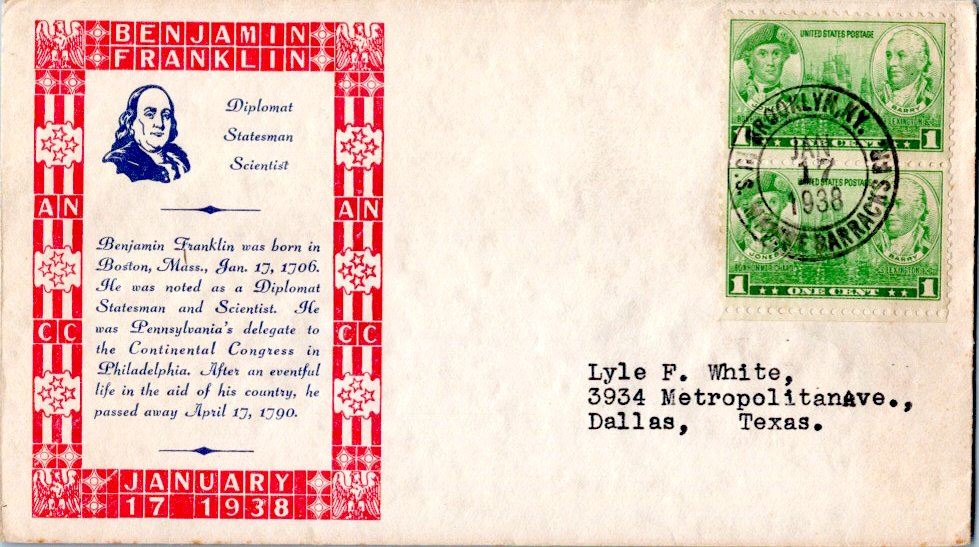 BENJAMIN
FRANKLIN
Diplomat
Statesman
Scientist
AN AN
Benjamin Franklin was born in
Boston, Mass., Jan. 17, 1706.
He was noted as a Diplomat
Statesman and Scientist. He
was Pennsylvania's delegate to
the Continental Congress in
Philadelphia. After an eventful
life in the aid of his country, he
passed away April 17, 1790.
CC CC
JANUARY
17 1938
UNITED STATES POSTAGE
BARRY
1 ONE CENT 1
BROOKLYN, N.Y.
JAN
17
1938
BARRACKS
UNITED STATES POSTAGE
JONES BARRY
BONHOMME RICHARD LEXINGTON
1 ONE CENT 1
Lyle F. White,
3934 MetropolitanAve.,
Dallas, Texas.